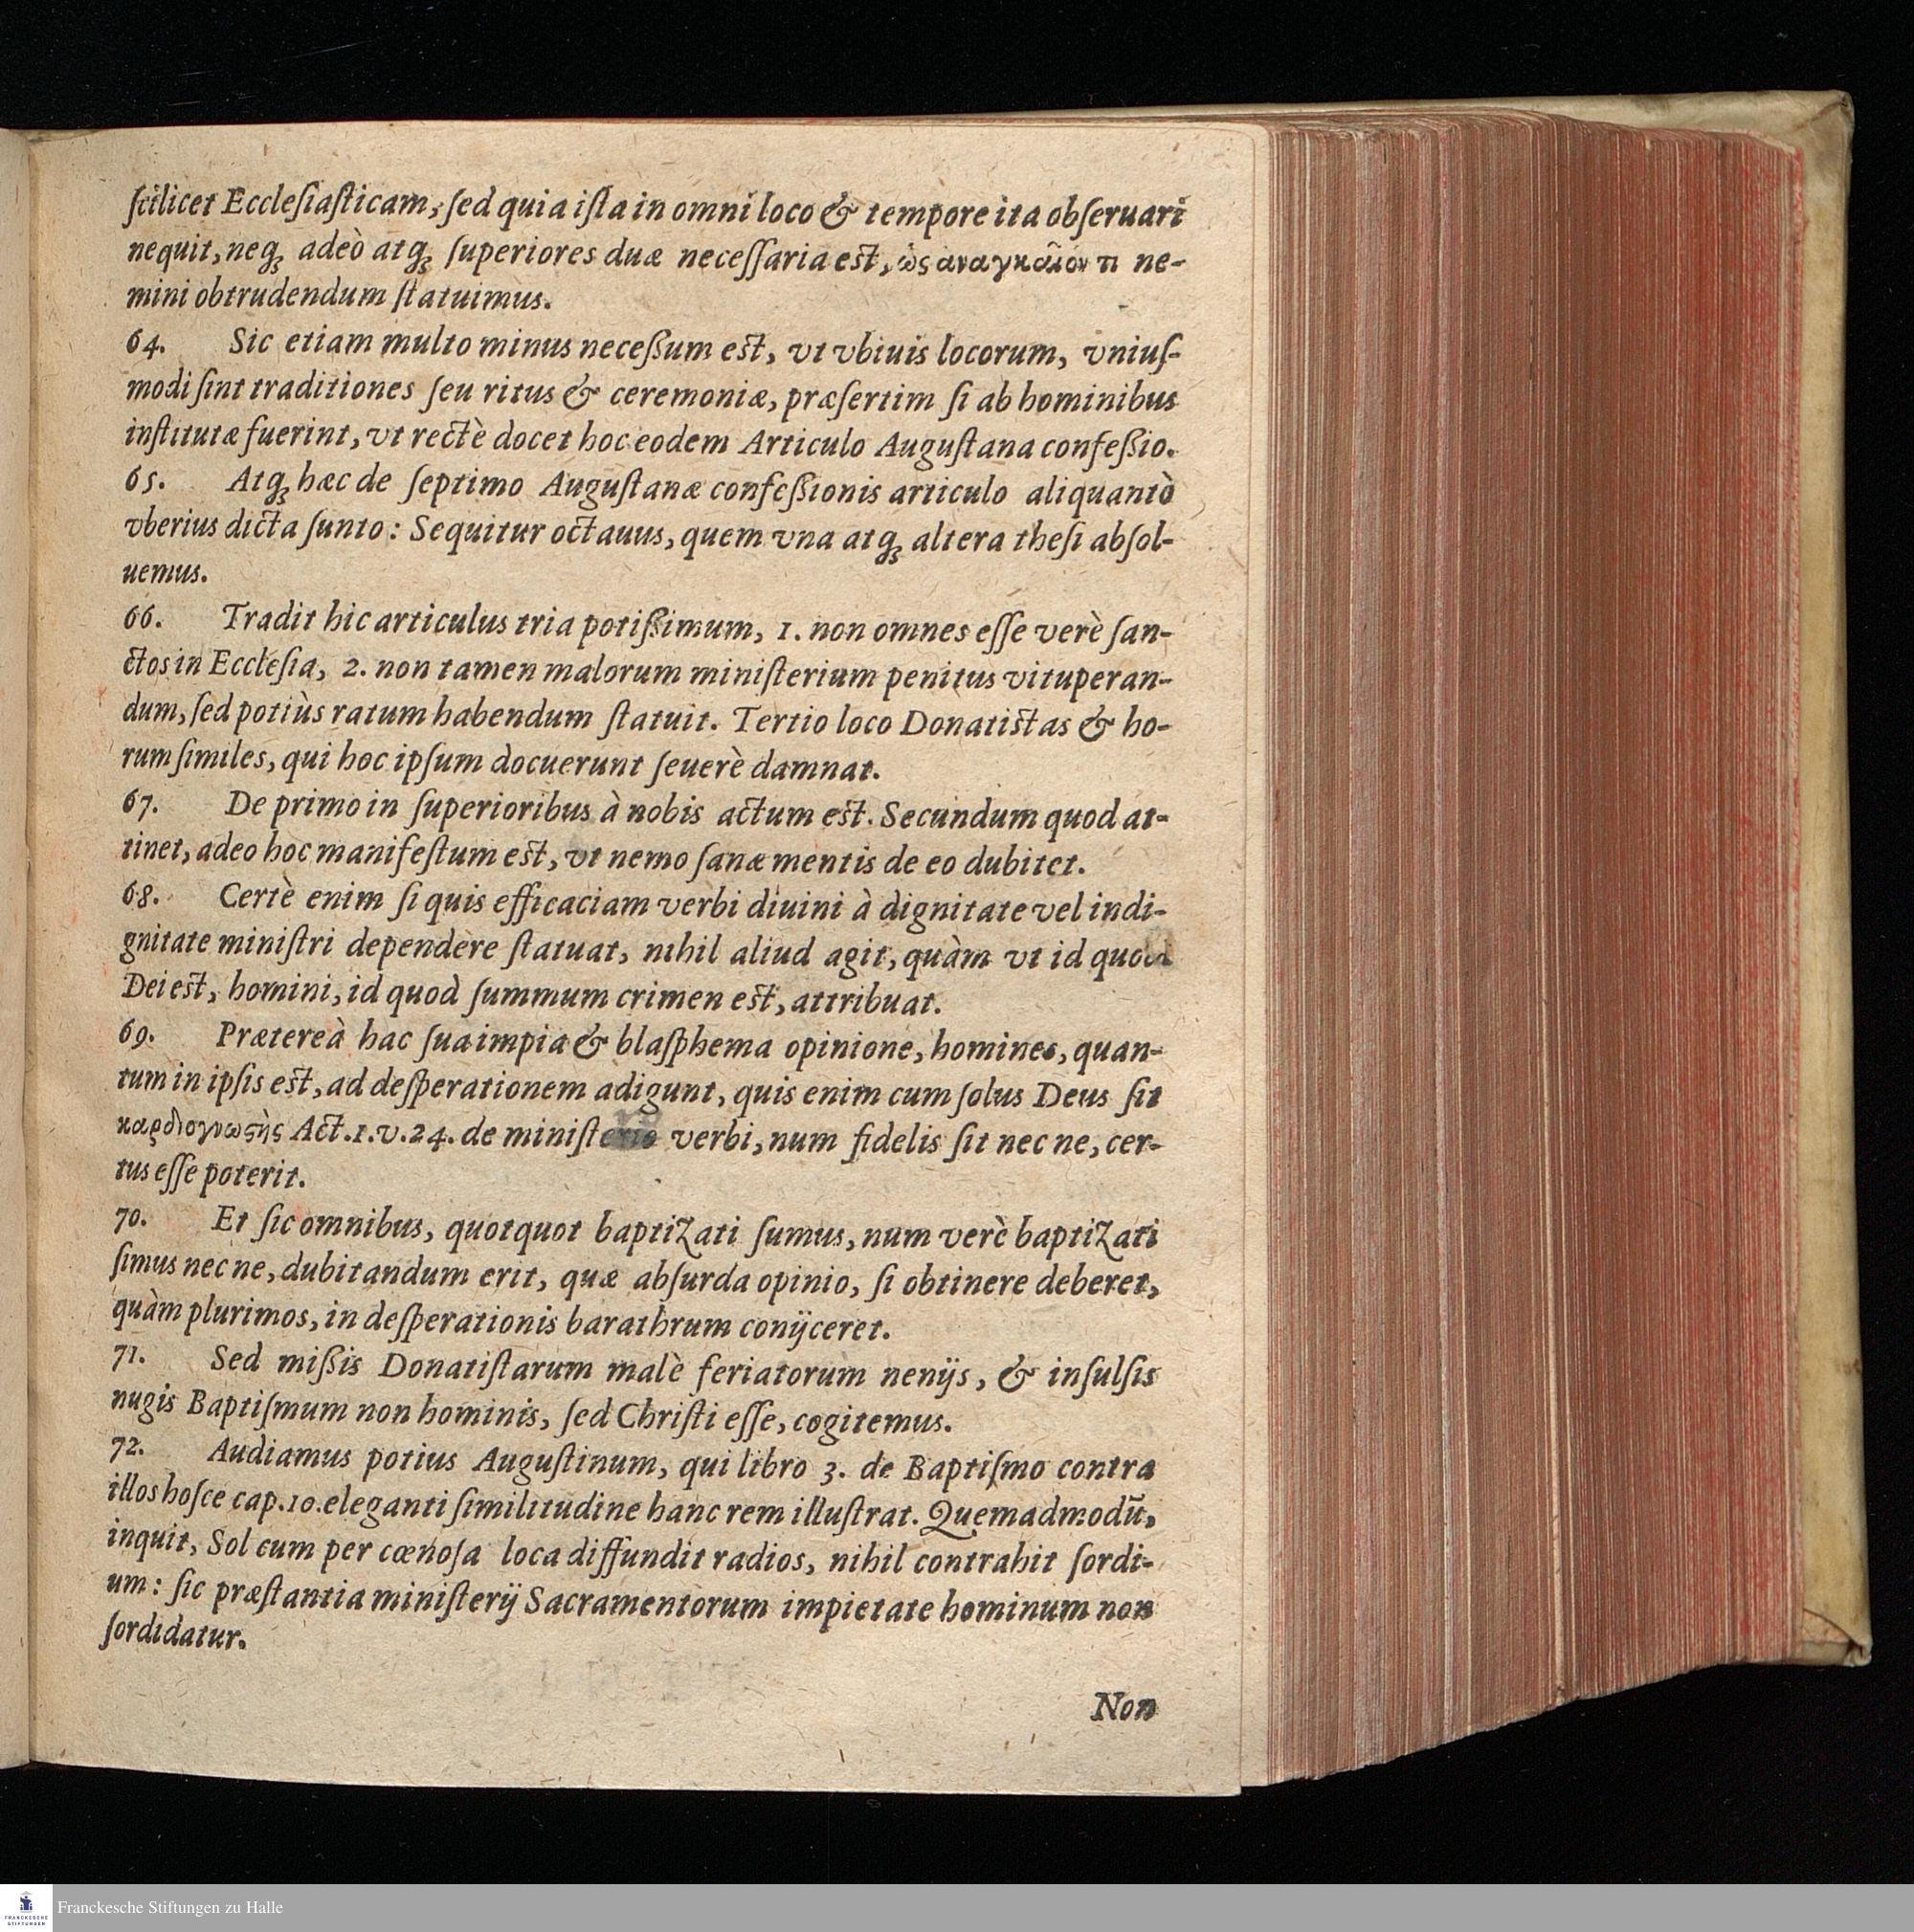 ſcilicet Eccleſiaſticam, ſed quia iſta in omni loco & tempore ita obſeruari
nequit, neq́; adeò atq́; ſuperiores duæ neceſſaria est, ὡς ἀναγκαῖόν τι ne-
mini obtrudendum ſtatuimus.
64. Sic etiam multo minus neceßum est, vt vbiuis locorum, vniuſ-
modi ſint traditiones ſeu ritus & ceremoniæ, præſertim ſi ab hominibus
inſtitutæ fuerint, vt rectè docet hoc eodem Articulo Auguſtana confeßio.
65. Atq́; hæc de ſeptimo Auguſtanæ confeßionis articulo aliquantò
vberius dicta ſunto: Sequitur octauus, quem vna atq́; altera theſi abſol-
uemus.
66. Tradit hic articulus tria potißimum, 1. non omnes eſſe verè ſan-
ctos in Eccleſia, 2. non tamen malorum miniſterium penitus vituperan-
dum, ſed potiùs ratum habendum ſtatuit. Tertio loco Donatistas & ho-
rum ſimiles, qui hoc ipſum docuerunt ſeuerè damnat.
67. De primo in ſuperioribus à nobis actum est. Secundum quod at-
tinet, adeo hoc manifeſtum est, vt nemo ſanæ mentis de eo dubitet.
68. Certè enim ſi quis efficaciam verbi diuini à dignitate vel indi-
gnitate miniſtri dependere ſtatuat, nihil aliud agit, quàm vt id quod
Dei est, homini, id quod ſummum crimen est, attribuat.
69. Prætereà hac ſua impia & blaſphema opinione, homines, quan-
tum in ipſis est, ad deſperationem adigunt, quis enim cum ſolus Deus ſit
καρδιογνωϛὴς Act. 1. v. 24. de miniſterio verbi, num fidelis ſit nec ne, cer-
tus eſſe poterit.
70. Et ſic omnibus, quotquot baptizati ſumus, num verè baptizati
ſimus nec ne, dubitandum erit, quæ abſurda opinio, ſi obtinere deberet,
quàm plurimos, in deſperationis barathrum conijceret.
71. Sed mißis Donatiſtarum malè feriatorum nenijs, & inſulſis
nugis Baptiſmum non hominis, ſed Chriſti eſſe, cogitemus.
72. Audiamus potius Auguſtinum, qui libro 3. de Baptiſmo contra
illos hoſce cap. 10. eleganti ſimilitudine hanc rem illuſtrat. Quemadmodū,
inquit, Sol cum per cœnoſa loca diffundit radios, nihil contrahit ſordi-
um: ſic præſtantia miniſterij Sacramentorum impietate hominum non
ſordidatur.
Non
FRANCKESCHE
STIFTUNGEN
Franckesche Stiftungen zu Halle